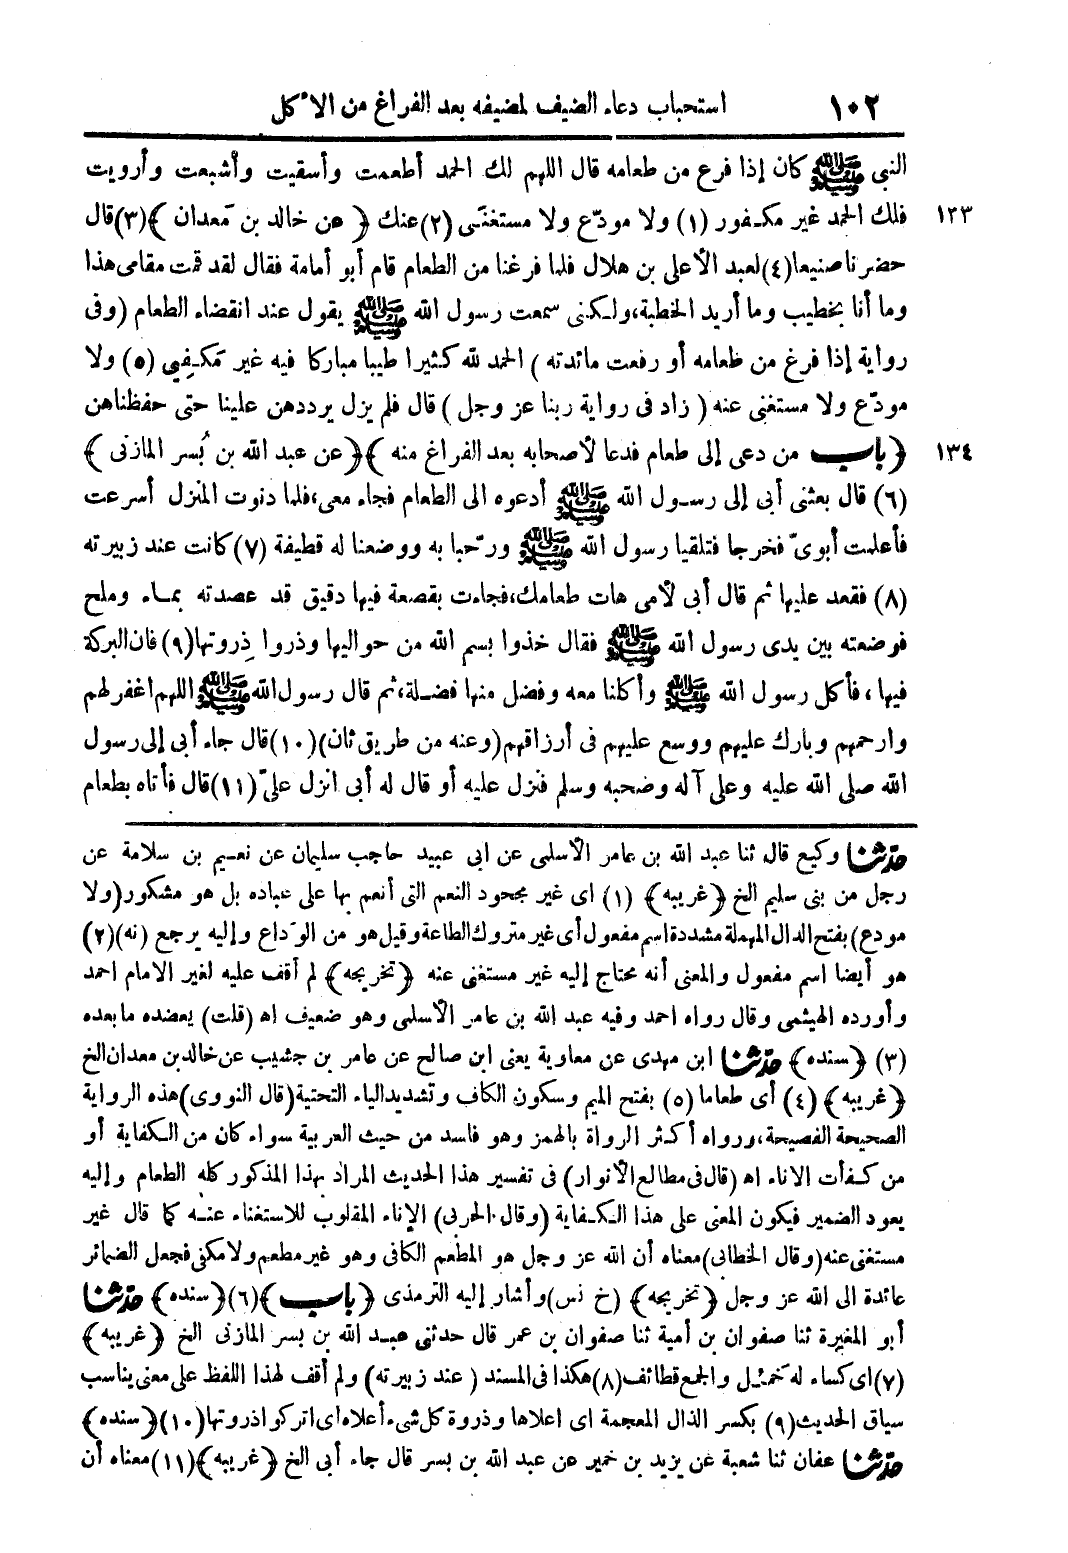 ١٠٢ استحباب دعاء الضيف لمضيفه بعد الفراغ من الأكل
النبي ﷺ كان إذا فرغ من طعامه قال اللهم لك الحمد أطعمت وأسقيت وأشبعت وأرويت
١٢٣ فلك الحمد غير مكفور (١) ولا مودّع ولا مستغنَى (٢) عنك ﴿ عن خالد بن مَعدان ﴾(٣) قال
حضرنا صنيعا(٤) لعبد الأعلى بن هلال فلما فرغنا من الطعام قام أبو أمامة فقال لقد قمت مقامى هذا
وما أنا بخطيب وما أريد الخطبة، ولكنى سمعت رسول الله ﷺ يقول عند انقضاء الطعام (وفى
رواية إذا فرغ من طعامه أو رفعت مائدته ) الحمد لله كثيرا طيبا مباركا فيه غير مَكفِىِّ (٥) ولا
مودّع ولا مستغنى عنه ( زاد فى رواية ربنا عز وجل ) قال فلم يزل يرددهن علينا حتى حفظناهن
١٣٤ ﴿ باب من دعى إلى طعام فدعا لأصحابه بعد الفراغ منه ﴾﴿ عن عبد الله بن بُسر المازنى ﴾
(٦) قال بعثنى أبى إلى رسول الله ﷺ أدعوه الى الطعام فجاء معى، فلما دنوت المنزل أسرعت
فأعلمت أبوىّ فخرجا فتلقيا رسول الله ﷺ ورحّبا به ووضعنا له قطيفة (٧) كانت عند زبيرته
(٨) فقعد عليها ثم قال أبى لأمى هات طعامك، فجاءت بقصعة فيها دقيق قد عصدته بماء وملح
فوضعته بين يدى رسول الله ﷺ فقال خذوا بسم الله من حواليها وذروا ذِروتها(٩) فان البركة
فيها ، فأكل رسول الله ﷺ وأكلنا معه وفضل منها فضلة، ثم قال رسول الله ﷺ اللهم اغفر لهم
وارحمهم وبارك عليهم ووسع عليهم فى أرزاقهم (وعنه من طريق ثان)(١٠) قال جاء أبى إلى رسول
الله صلى الله عليه وعلى آله وصحبه وسلم فنزل عليه أو قال له أبى انزل علىّ (١١) قال فأتاه بطعام
حدّثنا وكيع قال ثنا عبد الله بن عامر الأسلمى عن ابى عبيد حاجب سليمان عن نعيم بن سلامة عن
رجل من بنى سليم الخ ﴿غريبه﴾ (١) اى غير مجحود النعم التى أنعم بها على عباده بل هو مشكور (ولا
مودع) بفتح الدال المهملة مشددة اسم مفعول أى غير متروك الطاعة وقيل هو من الوَداع وإليه يرجع (نه)(٢)
هو أيضا اسم مفعول والمعنى أنه محتاج إليه غير مستغنى عنه ﴿تخريجه﴾ لم أقف عليه لغير الامام احمد
وأورده الهيثمى وقال رواه احمد وفيه عبد الله بن عامر الأسلمى وهو ضعيف اه (قلت) يعضده ما بعده
(٣) ﴿سنده﴾ حدّثنا ابن مهدى عن معاوية يعنى ابن صالح عن عامر بن جشيب عن خالد بن معدان الخ
﴿غريبه﴾ (٤) أى طعاما (٥) بفتح الميم وسكون الكاف وتشديد الياء التحتية (قال النووى) هذه الرواية
الصحيحة الفصيحة، ورواه أكثر الرواة بالهمز وهو فاسد من حيث العربية سواء كان من الكفاية أو
من كفأت الاناء اه (قال فى مطالع الأنوار) فى تفسير هذا الحديث المراد بهذا المذكور كله الطعام وإليه
يعود الضمير فيكون المعنى على هذا الكفاية (وقال الحربى) الإناء المقلوب للاستغناء عنه كما قال غير
مستغنى عنه (وقال الخطابى) معناه أن الله عز وجل هو المطعم الكافى وهو غير مطعم ولا مكفى فجعل الضمائر
عائدة الى الله عز وجل ﴿تخريجه﴾ (خ نس) وأشار إليه الترمذى ﴿ باب ﴾(٦)﴿سنده﴾ حدّثنا
أبو المغيرة ثنا صفوان بن أمية ثنا صفوان بن عمر قال حدثنى عبد الله بن بسر المازنى الخ ﴿غريبه﴾
(٧) اى كساء له خَمْل والجمع قطائف (٨) هكذا فى المسند ( عند زبيرته) ولم أقف لهذا اللفظ على معنى يناسب
سياق الحديث (٩) بكسر الذال المعجمة اى اعلاها وذروة كل شىء أعلاه اى اتركوا ذروتها (١٠) ﴿سنده﴾
حدّثنا عفان ثنا شعبة عن يزيد بن خمير عن عبد الله بن بسر قال جاء أبى الخ ﴿غريبه﴾ (١١) معناه أن